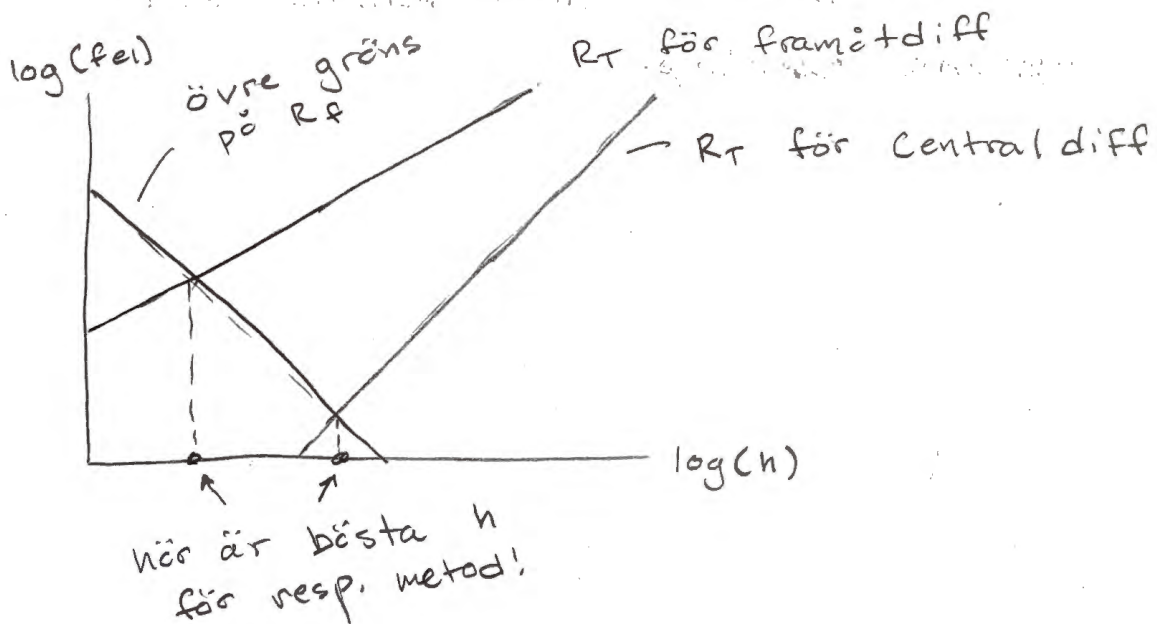 log(fel)
övre gräns
på Rf
RT för framåtdiff
RT för Centraldiff
log(h)
här är bästa h
för resp. metod!